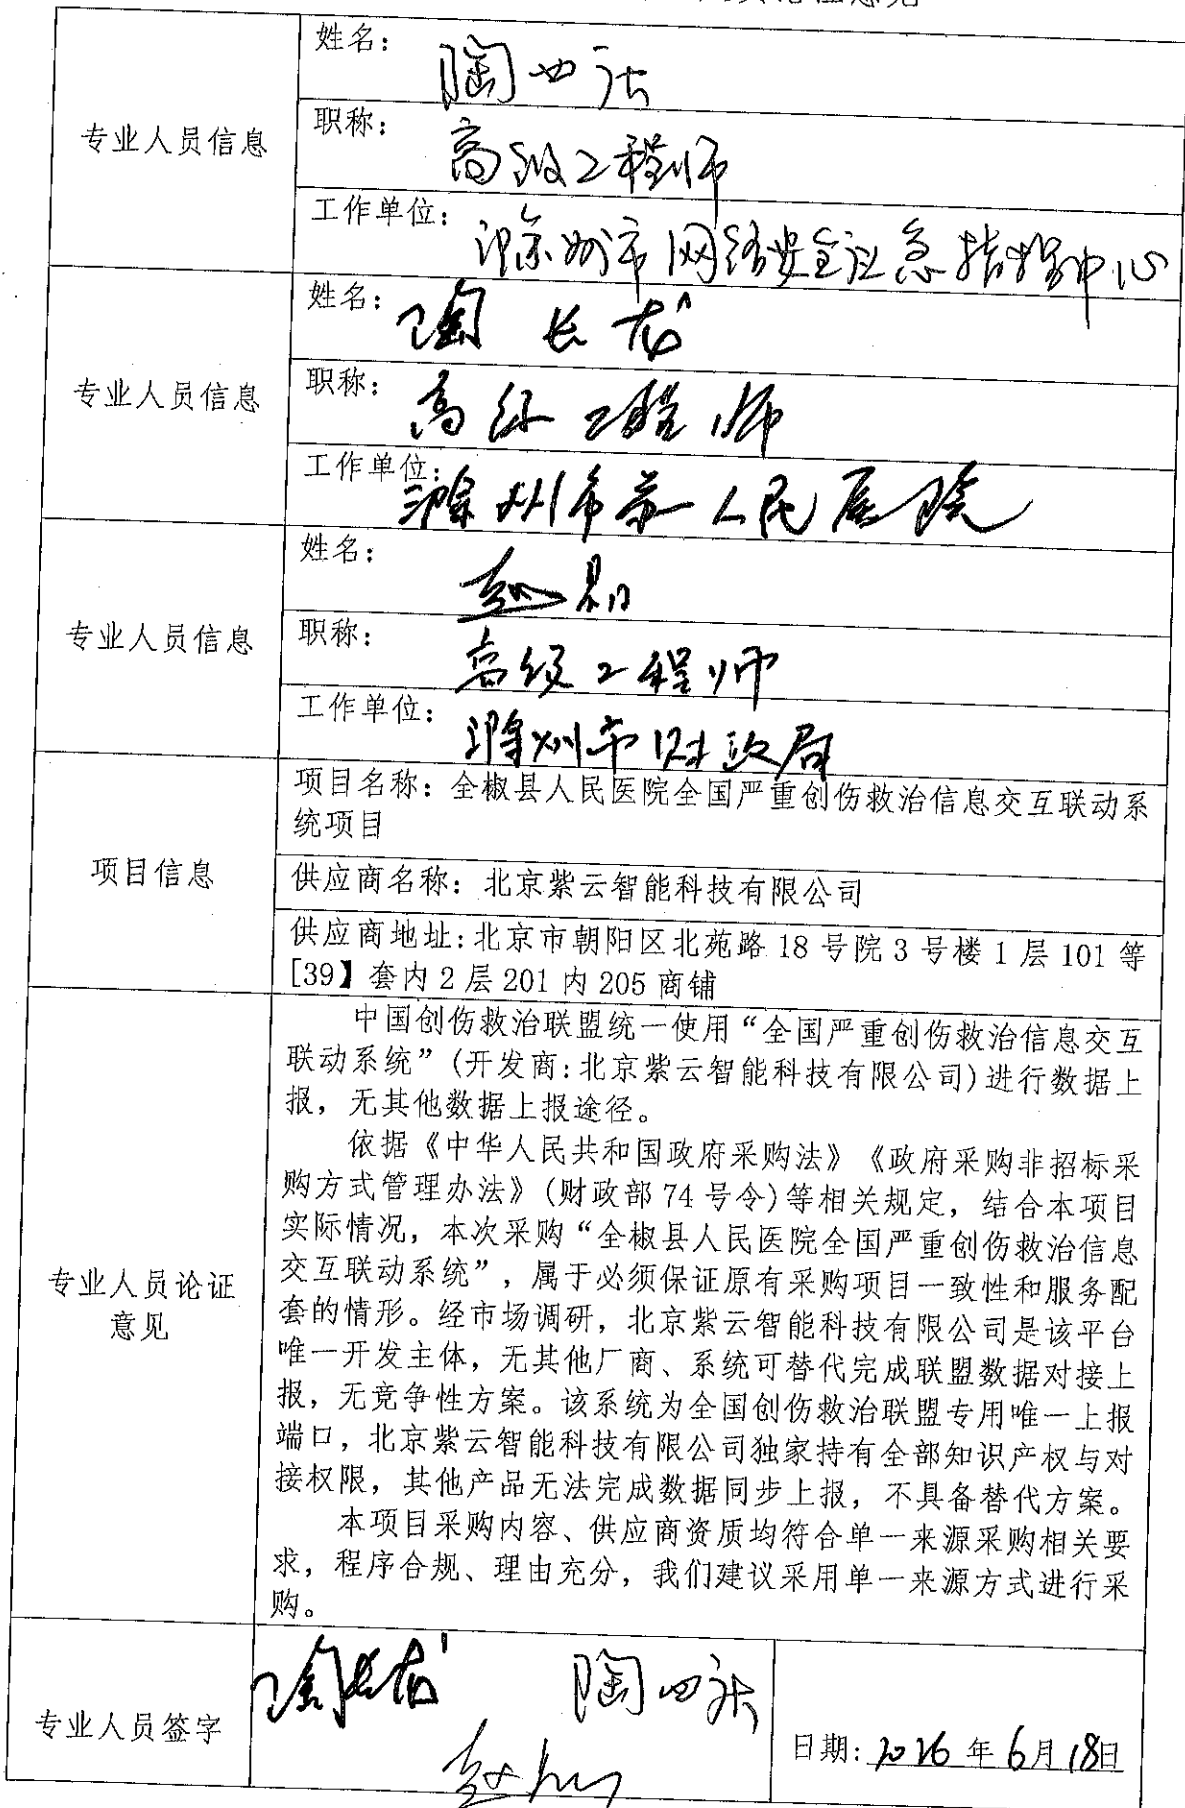 姓名：陶
专业人员信息
职称：高级工程师
工作单位：滁州市网络安全应急指挥中心
姓名：陶长龙
专业人员信息
职称：高级工程师
工作单位：滁州市第一人民医院
姓名：赵
专业人员信息
职称：高级工程师
工作单位：滁州市财政局
项目信息
项目名称：全椒县人民医院全国严重创伤救治信息交互联动系
统项目
供应商名称：北京紫云智能科技有限公司
供应商地址：北京市朝阳区北苑路 18 号院 3 号楼 1 层 101 等
[39】套内 2 层 201 内 205 商铺
专业人员论证
意见
中国创伤救治联盟统一使用“全国严重创伤救治信息交互
联动系统”(开发商:北京紫云智能科技有限公司)进行数据上
报，无其他数据上报途径。
依据《中华人民共和国政府采购法》《政府采购非招标采
购方式管理办法》(财政部 74 号令)等相关规定，结合本项目
实际情况，本次采购“全椒县人民医院全国严重创伤救治信息
交互联动系统”，属于必须保证原有采购项目一致性和服务配
套的情形。经市场调研，北京紫云智能科技有限公司是该平台
唯一开发主体，无其他厂商、系统可替代完成联盟数据对接上
报，无竞争性方案。该系统为全国创伤救治联盟专用唯一上报
端口，北京紫云智能科技有限公司独家持有全部知识产权与对
接权限，其他产品无法完成数据同步上报，不具备替代方案。
本项目采购内容、供应商资质均符合单一来源采购相关要
求，程序合规、理由充分，我们建议采用单一来源方式进行采
购。
专业人员签字
陶长龙 陶
赵
日期：2026 年 6 月 18 日